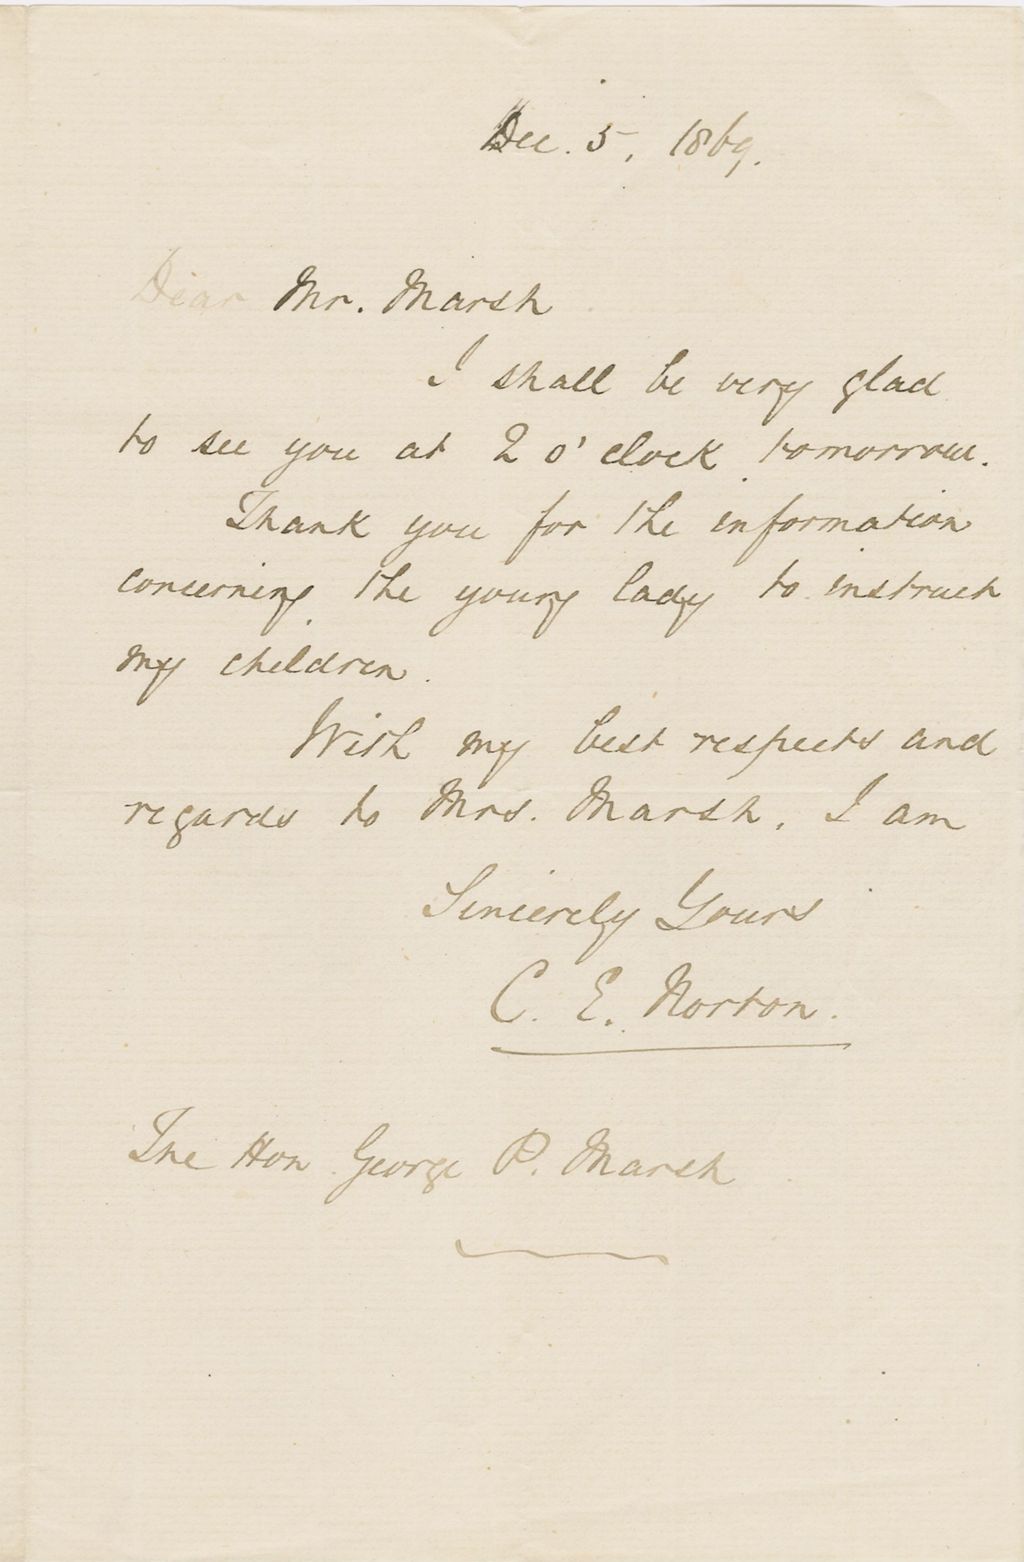 Dec. 5, 1869.
Dear Mr. Marsh
I shall be very glad
to see you at 2 o'clock tomorrow.
Thank you for the information
concerning the young lady to instruct
my children.
With my best respects and
regards to Mrs. Marsh, I am
Sincerely Yours
C. E. Norton.
The Hon George P. Marsh